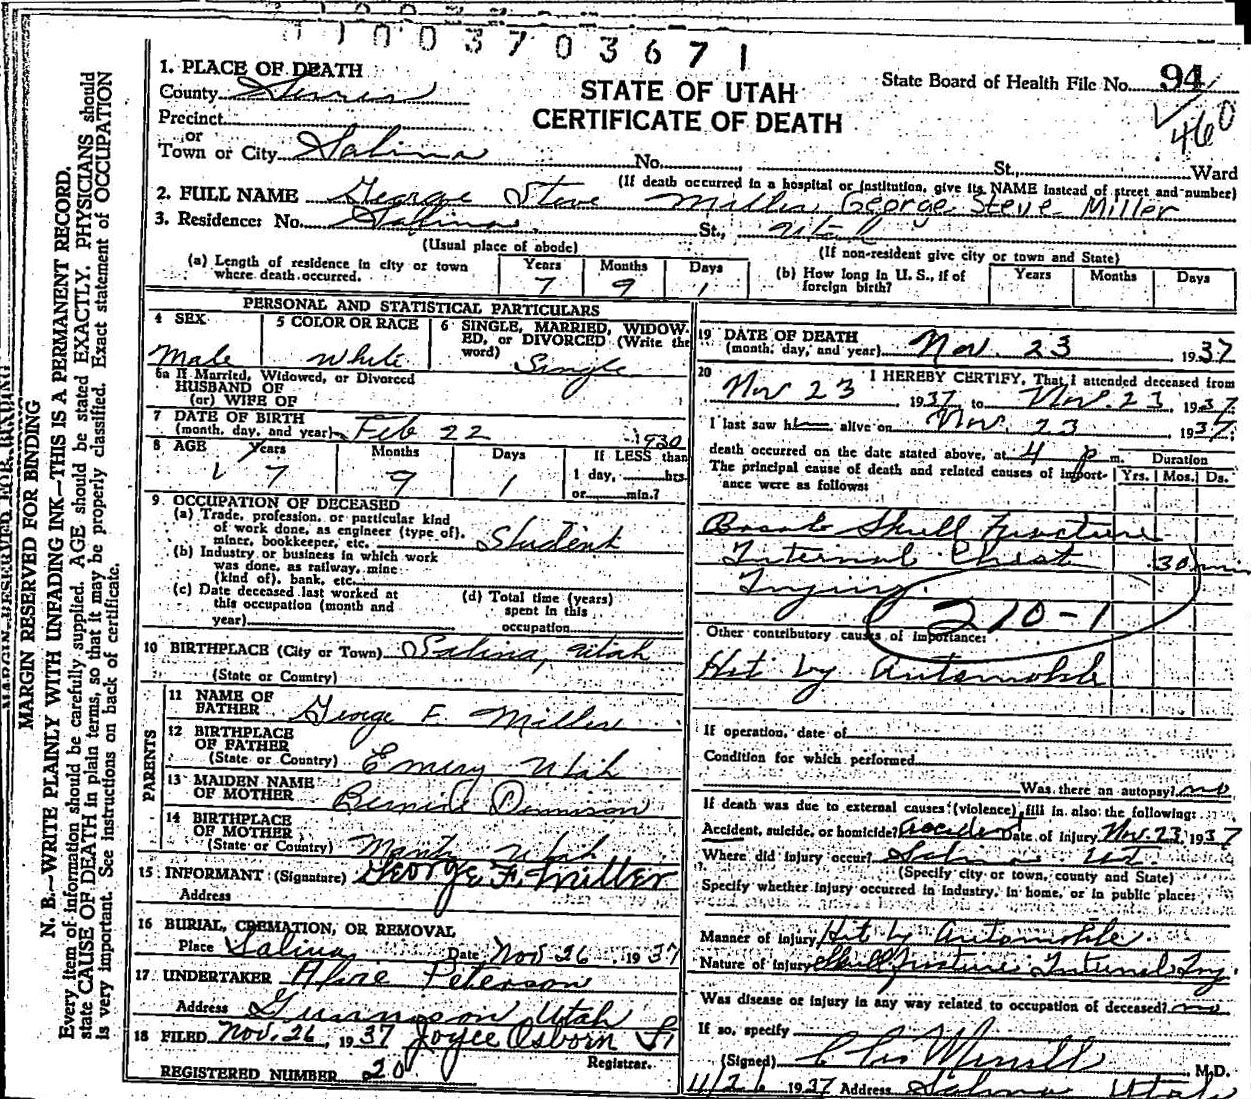 1 0 0 3 7 0 3 6 7 1
1. PLACE OF DEATH
County Sevier
STATE OF UTAH
CERTIFICATE OF DEATH
State Board of Health File No. 94
460
Precinct
or
Town or City Salina No. St., Ward
(If death occurred in a hospital or institution, give its NAME instead of street and number)
2. FULL NAME George Steve Miller George Steve Miller
3. Residence: No. Salina St., Utah
(Usual place of abode) (If non-resident give city or town and State)
(a) Length of residence in city or town where death occurred. Years 7 Months 9 Days 1
(b) How long in U. S., if of foreign birth? Years Months Days
PERSONAL AND STATISTICAL PARTICULARS
4 SEX Male
5 COLOR OR RACE White
6 SINGLE, MARRIED, WIDOWED, or DIVORCED (Write the word) Single
6a If Married, Widowed, or Divorced
HUSBAND OF
(or) WIFE OF
7 DATE OF BIRTH
(month, day, and year) Feb 22 1930
8 AGE Years 7 Months 9 Days 1
If LESS than
1 day, hrs.
or min.?
9 OCCUPATION OF DECEASED
(a) Trade, profession, or particular kind
of work done, as engineer (type of),
miner, bookkeeper, etc. Student
(b) Industry or business in which work
was done, as railway, mine
(kind of), bank, etc.
(c) Date deceased last worked at
this occupation (month and
year)
(d) Total time (years)
spent in this
occupation
10 BIRTHPLACE (City or Town) Salina, Utah
(State or Country)
PARENTS
11 NAME OF
FATHER George F. Miller
12 BIRTHPLACE
OF FATHER
(State or Country) Emery Utah
13 MAIDEN NAME
OF MOTHER Bernice Dennison
14 BIRTHPLACE
OF MOTHER
(State or Country) Manti Utah
15 INFORMANT (Signature) George F. Miller
Address
16 BURIAL, CREMATION, OR REMOVAL
Place Salina Date Nov 26 1937
17 UNDERTAKER Peterson
Address Gunnison Utah
18 FILED Nov. 26, 1937 Joyce Osborn
Registrar.
REGISTERED NUMBER 20
19 DATE OF DEATH
(month, day, and year) Nov. 23, 1937
20 I HEREBY CERTIFY, That I attended deceased from
Nov 23 1937 to Nov. 23, 1937
I last saw h alive on Nov. 23 1937
death occurred on the date stated above, at 4 p m. Duration
The principal cause of death and related causes of importance were as follows: Yrs. Mos. Ds.
Skull Fracture
Internal Chest 30 min
Injury.
210-1
Other contributory causes of importance:
Hit by Automobile
If operation, date of
Condition for which performed
Was there an autopsy? no
If death was due to external causes (violence) fill in also the following:
Accident, suicide, or homicide? accident Date of injury Nov. 23, 1937
Where did injury occur? Salina Ut.
(Specify city or town, county and State)
Specify whether injury occurred in industry, in home, or in public place:
Manner of injury Hit by Automobile
Nature of injury Skull fracture Internal Inj.
Was disease or injury in any way related to occupation of deceased? no
If so, specify
(Signed) M.D.
1937 Address Salina Utah
MARGIN RESERVED FOR BINDING
MARGIN RESERVED FOR BINDING
N. B.—WRITE PLAINLY WITH UNFADING INK—THIS IS A PERMANENT RECORD.
Every item of information should be carefully supplied. AGE should be stated EXACTLY. PHYSICIANS should
state CAUSE OF DEATH in plain terms, so that it may be properly classified. Exact statement of OCCUPATION
is very important. See instructions on back of certificate.